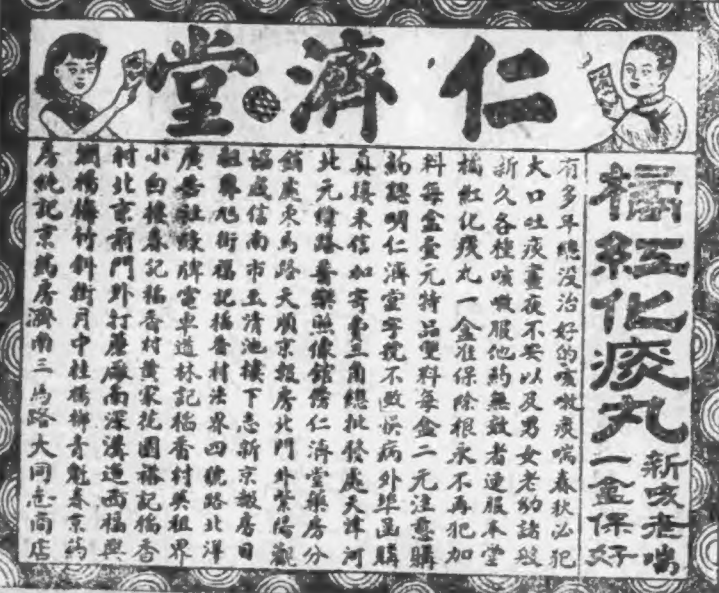 仁濟堂
橘紅化痰丸
新咳老喘
一盒保好
有多年總没治好的咳嗽痰喘春秋必犯
大口吐痰晝夜不安以及男女老幼諸般
新久各種咳嗽服他药無效者連服本堂
橘紅化痰丸一盒准保除根永不再犯加
料每盒壹元特品雙料每盒二元注意購
药認明仁濟堂字號不致悞病外埠函購
直接來信加寄費三角總批發處天津河
北元緯路普樂照像館傍仁濟堂藥房分
銷處東馬路天順京報房北門外紫陽觀
協成信南市玉清池樓下志新京報房日
租界旭街福記稻香村法界四號路北洋
廣告社綠牌電車道林記稻香村英租界
小白樓春記稻香村黄家花園裕記稻香
村北京前門外打磨廠南深溝這西福興
潤楊梅竹斜街月中桂楊柳青魁春京药
房純記京药房濟南三馬路大同志商店